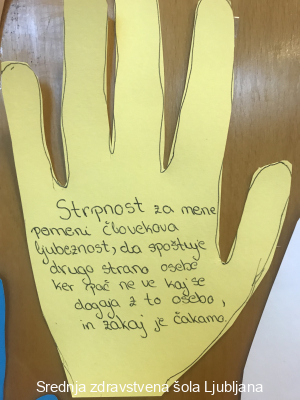 Strpnost za mene
pomeni človekova
ljubeznost, da spoštuje
drugo strano osebe
ker pač ne ve kaj se
dogaja z to osebo,
in zakaj je čakamo.
Srednja zdravstvena šola Ljubljana